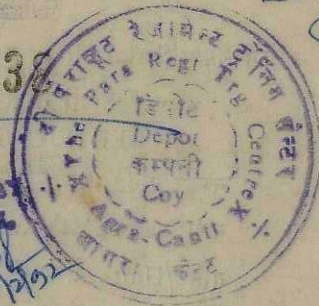 38
दी पैराशूट रेजीमेन्ट ट्रेनिंग सेन्टर
The Para Regt Trg Centre
डिपोट
Depot
कम्पनी
Coy
Agra-Cantt
आगरा केन्ट